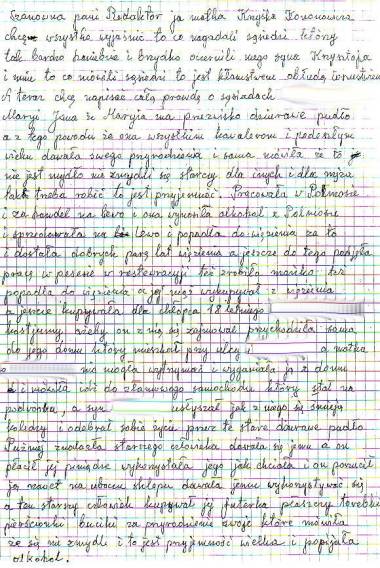 Szanowna pani Redaktor ja matka Krzyśka Kononowicza
chcę wszystko wyjaśnić to co nagadali sąsiedzi którzy
tak bardzo haniebnie i brzydko oczernili mego syna Krzysztofa
i mnie to co mówili sąsiedzi to jest kłamstwem obłudą
A teraz chcę napisać całą prawdę o sąsiadach
Maryi Jana że Maryja ma przezwisko dziurawe pudło
a z tego powodu że ona wszystkim kawalerom i podeszłym
wieku dawała swego przyrodzenia i sama mówiła że to
nie jest mydło nie zmydli się starczy dla innych i dla męża
tak trzeba robić to jest przyjemność. Pracowała w Polmosie
i za handel na lewo i ona wynosiła alkohol z Polmosie
i sprzedawała na lewo i popadła do więzienia za to
i dostała dobrych parę lat więzienia a jeszcze do tego podjęła
pracę w restauracji też zrobiła manko też
popadła do więzienia a jej mąż wykupywał z więzienia
a jeszcze kupywała dla chłopca 18 letniego
kostjumy żeby on z nią się zajmował przychodziła sama
do jego domu który mieszkał przy ulicy a matka
nie mogła wytrzymać i wyganiała ją z domu
i mówiła idź do złamanego samochodu który stał na
podwórku, a syn usłyszał jak z niego się śmieją
koledzy i odebrał sobie życie przez te stare dziurawe pudło
Później znalazła starszego człowieka dawała się jemu a on
płacił jej pieniądze wykorzystała jego jak chciała i on porzucił
ją nawet na uboczu sklepu dawała jemu wykorzystywać się
a ten starszy człowiek kupywał jej futerka płaszczy torebki
pierścionki buciki za przyrodzenie swoje które mówiła
że się nie zmydli i to jest przyjemność wielka i popijała
alkohol.